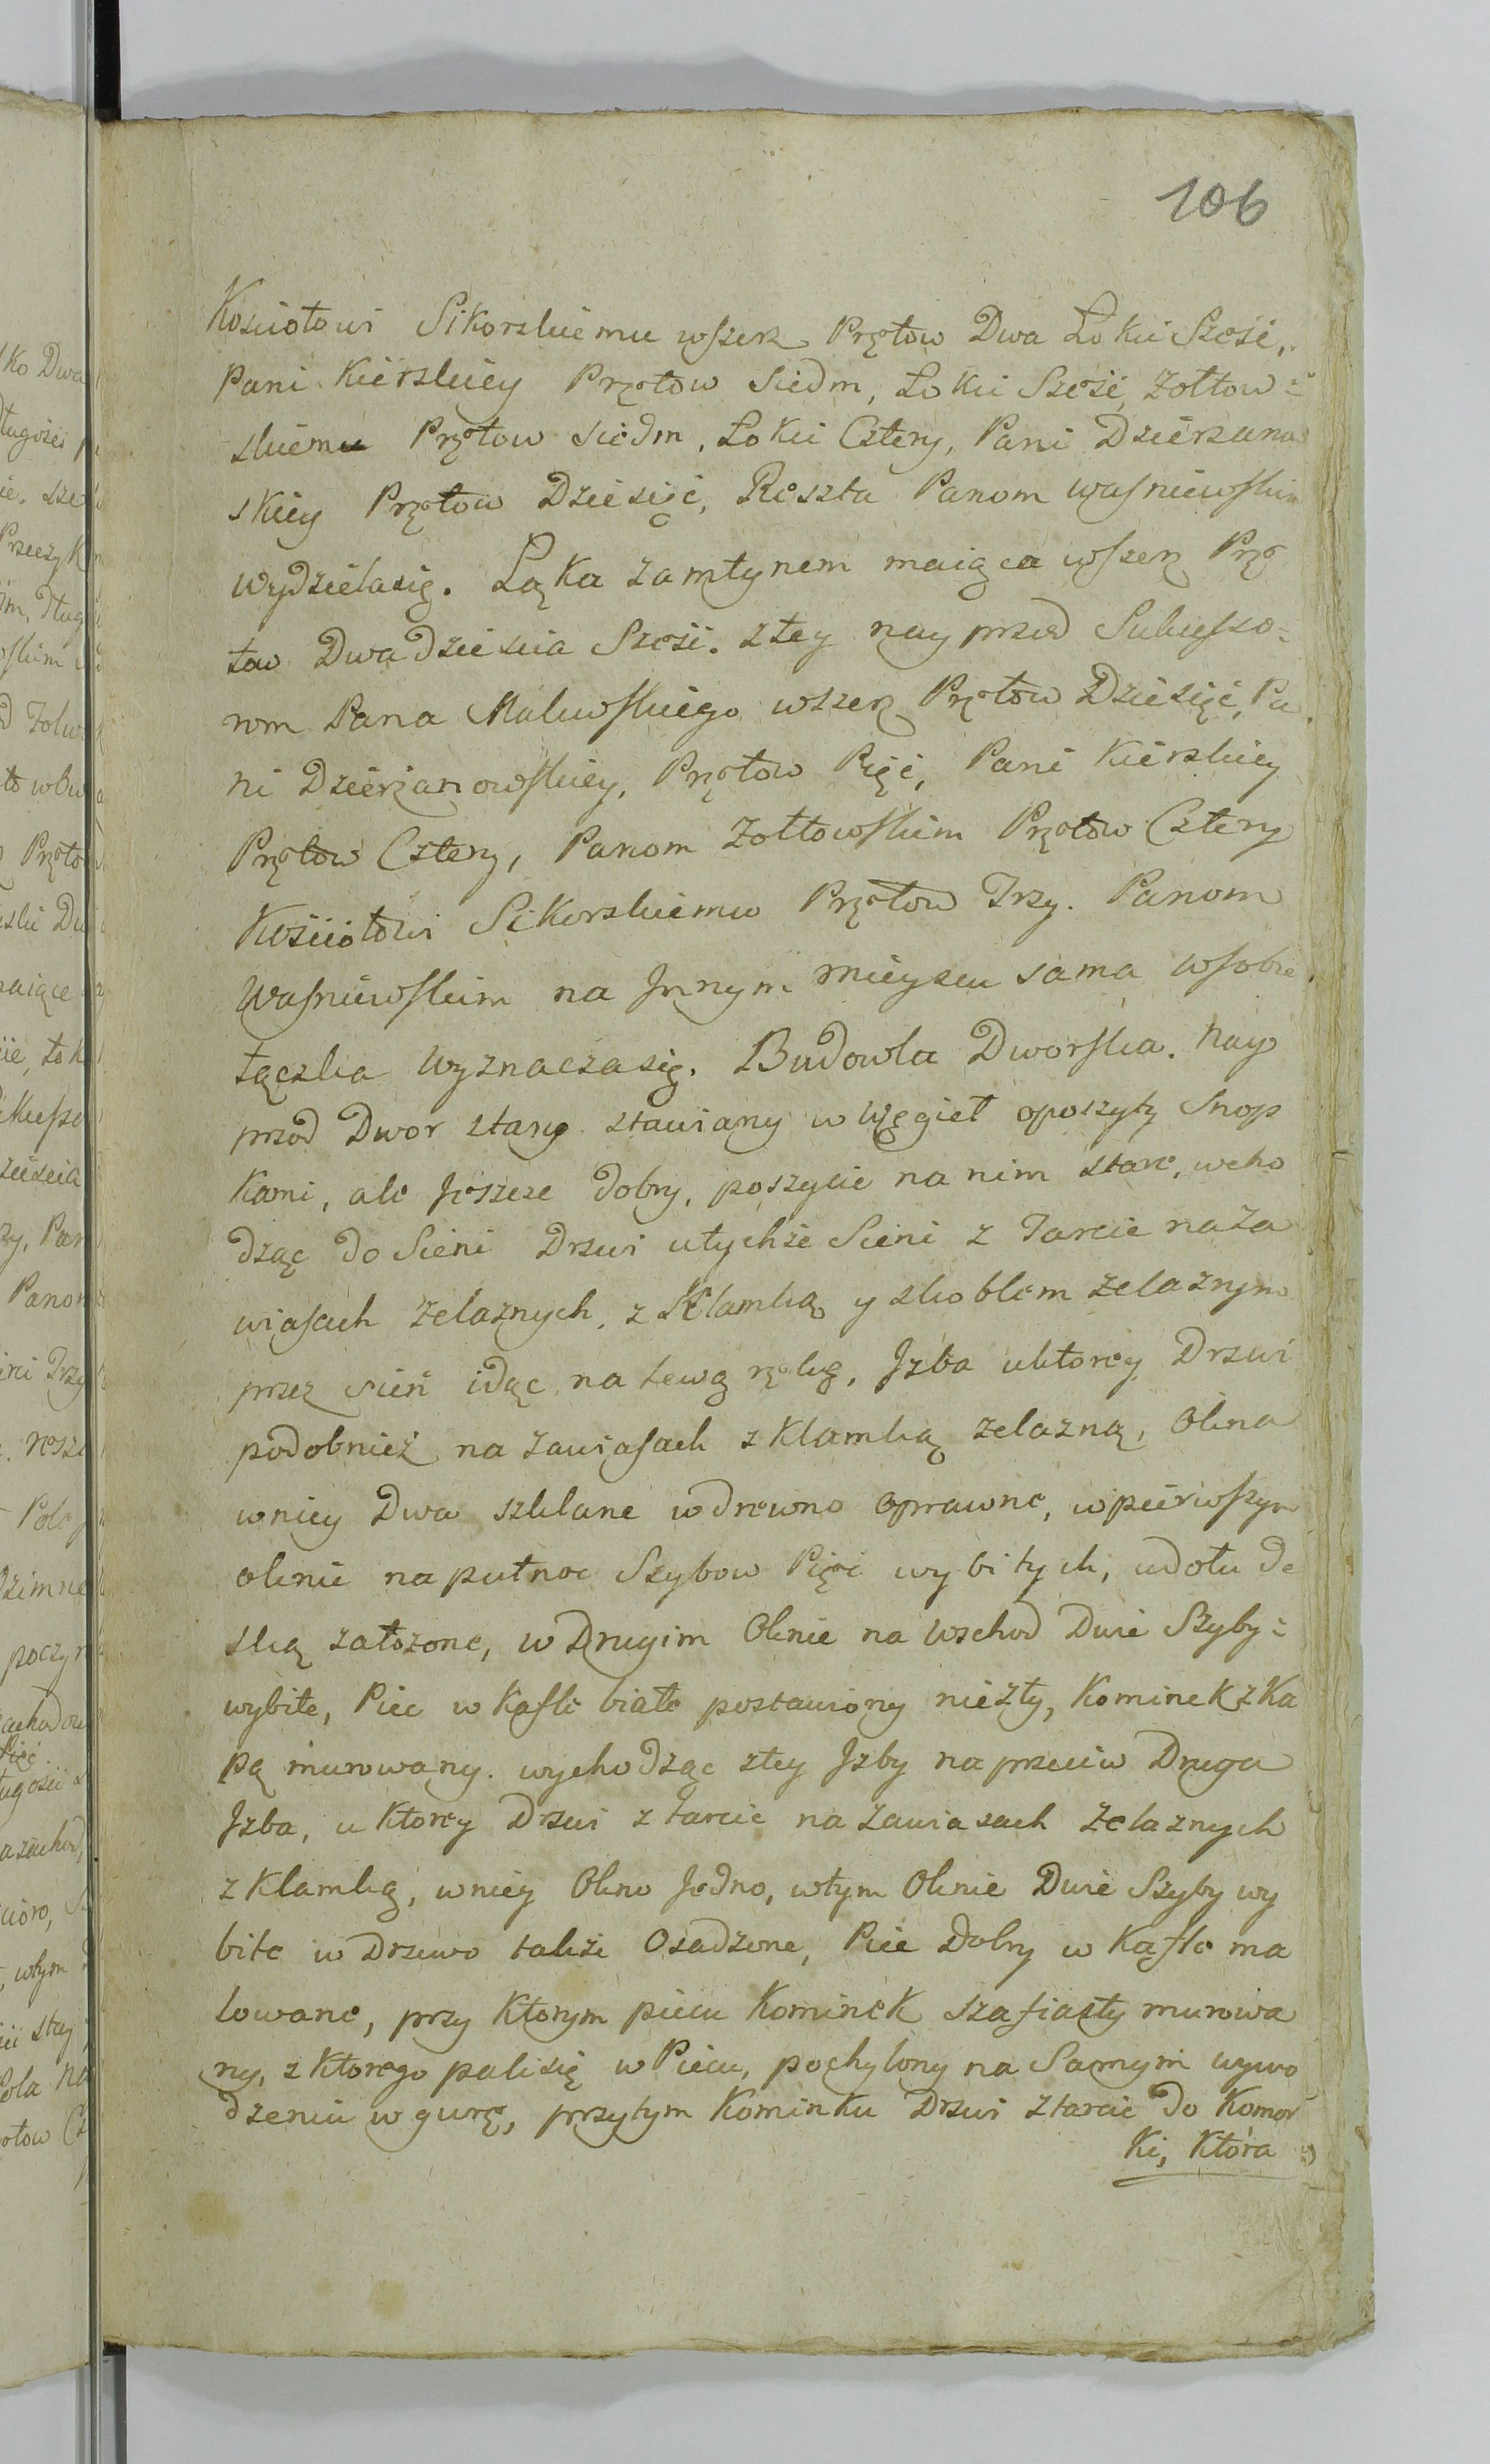 106
Kosciołowi Sikorskiemu wszerz Prętow Dwa Łokci Szesć,
Pani Kierskiey Prętow Siedm, Łokci Szesć, Zołtow=
skiemu Prętow siedm, Łokci Cztery, Pani Dzierzanow
skiey Prętow Dziesięć, Reszta Panom Wasniewskim
wydzielasię. Łąka zamłynem maiąca wszerz Prę
tow Dwadziescia Szesć. ztey nayprzod Sukcesso=
rom Pana Maluskiego wszerz Prętow Dziesięć, Pa
ni Dzierzanowskiey, Prętow Pięć, Pani Kierskiey
Prętow Cztery, Panom Zołtowskim Prętow Cztery
Kosciołowi Sikorskiemu Prętow Trzy. Panom
Wasniewskim na Jnnym mieyscu sama wsobie
łączka wyznaczasię. Budowla Dworska. Nay
przod Dwor stary stawiany w węgieł oposzyty Snop
kami, ale Jeszcze dobry, poszycie na nim stare, wcho
dząc do Sieni Drzwi utychże Sieni z Tarcic na Za
wiasach żelaznych, z Klamką y skoblem żelaznym
przez sień idąc na lewą rękę, Jzba uktorey Drzwi
podobnież na zawiasach z Klamką żelazną, Okna
wniey Dwa szklane w drewno oprawne, wpierwszym
oknie na pułnoc Szybow Pięć wybitych, udołu de
ską załozone, w Drugim Oknie na wschod Dwie Szyby=
wybite, Piec w Kafle białe postawiony niezły, Kominek z Ka
pą murowany. wychodząc ztey Jzby na przeciw Druga
Jzba, u Ktorey Drzwi z tarcic na zawiasach żelaznych
z Klamką, wniey Okno Jedno, wtym Oknie Dwie Szyby wy
bite w Drzewo także Osadzone, Piec Dobry w Kafle ma
lowane, przy Ktorym piecu Kominek szafiasty murowa
ny, z Ktorego palisię w Piecu, pochylony na Samym wywo
dzeniu w gurę, przytym Kominku Drzwi z tarcic do Komor
ki, Która